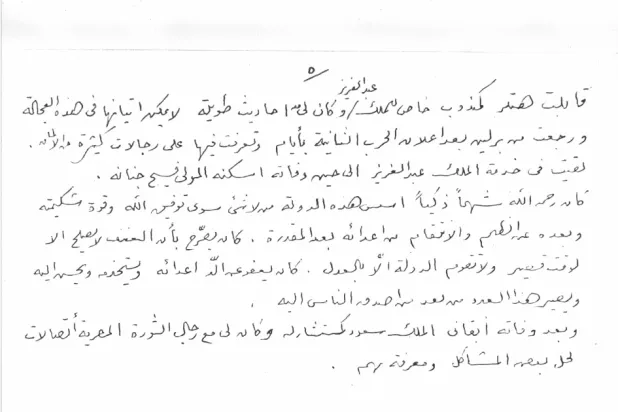 ٥
قابلت هتلر كمندوب خاص للملك عبدالعزيز وكان لي معه احاديث طويلة لا يمكن اتيانها في هذه العجالة
ورجعت من برلين بعد اعلان الحرب الثانية بأيام وتعرفت فيها على رجالات كثيرة من الالمان.
بقيت في خدمة الملك عبدالعزيز الى حين وفاته اسكنه المولى فسيح جنانه.
كان رحمه الله شهماً ذكياً اسس هذه الدولة من لاشئ سوى توفيق الله وقوة شكيمته
وبعده عن الظلم والانتقام من اعدائه بعد المقدرة. كان يصرّح بأن العنف لا يصلح الا
لوقت قصير ولا تقوم الدولة الّا بالعدل. كان يعفو عن ألدّ اعدائه ويستخدمه ويحسن اليه
ويصير هذا العدو من بعد من اصدق الناس اليه.
وبعد وفاته أبقاني الملك سعود كمستشار له وكان لي مع رجال الثورة المصرية أتصالات
لحل بعض المشاكل ومعرفة بهم.